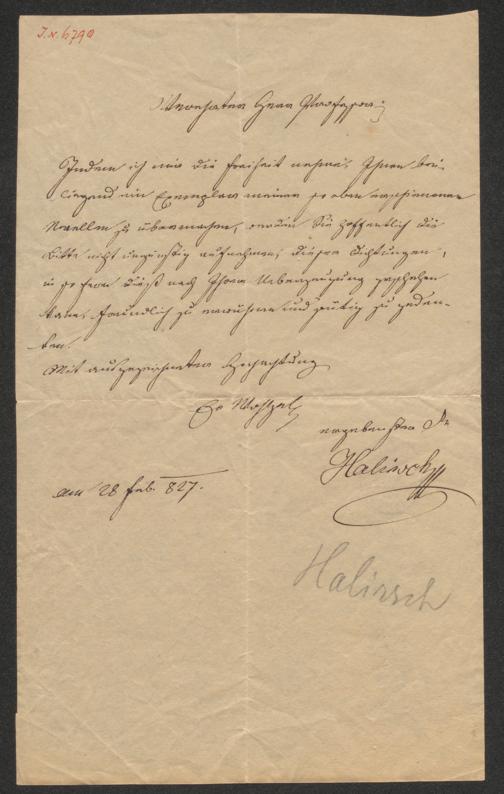 I.N. 6790
Verehrter Herr Professor;
Indem ich mir die Freiheit nehme, Ihnen bei-
liegend ein Exemplar meiner so eben erschienenen
Novellen zu übermachen, werden Sie hoffentlich die
Bitte nicht ungünstig aufnehmen, diesen Dichtungen,
in so fern dieß nach Ihrer Ueberzeugung geschehen
kann, freundlich zu erwähnen und gütig zu geden-
ken.
Mit ausgezeichneter Hochachtung
Er Wohlgeb
ergebenster
Halirsch
am 28 Feb. 827.
Halirsch